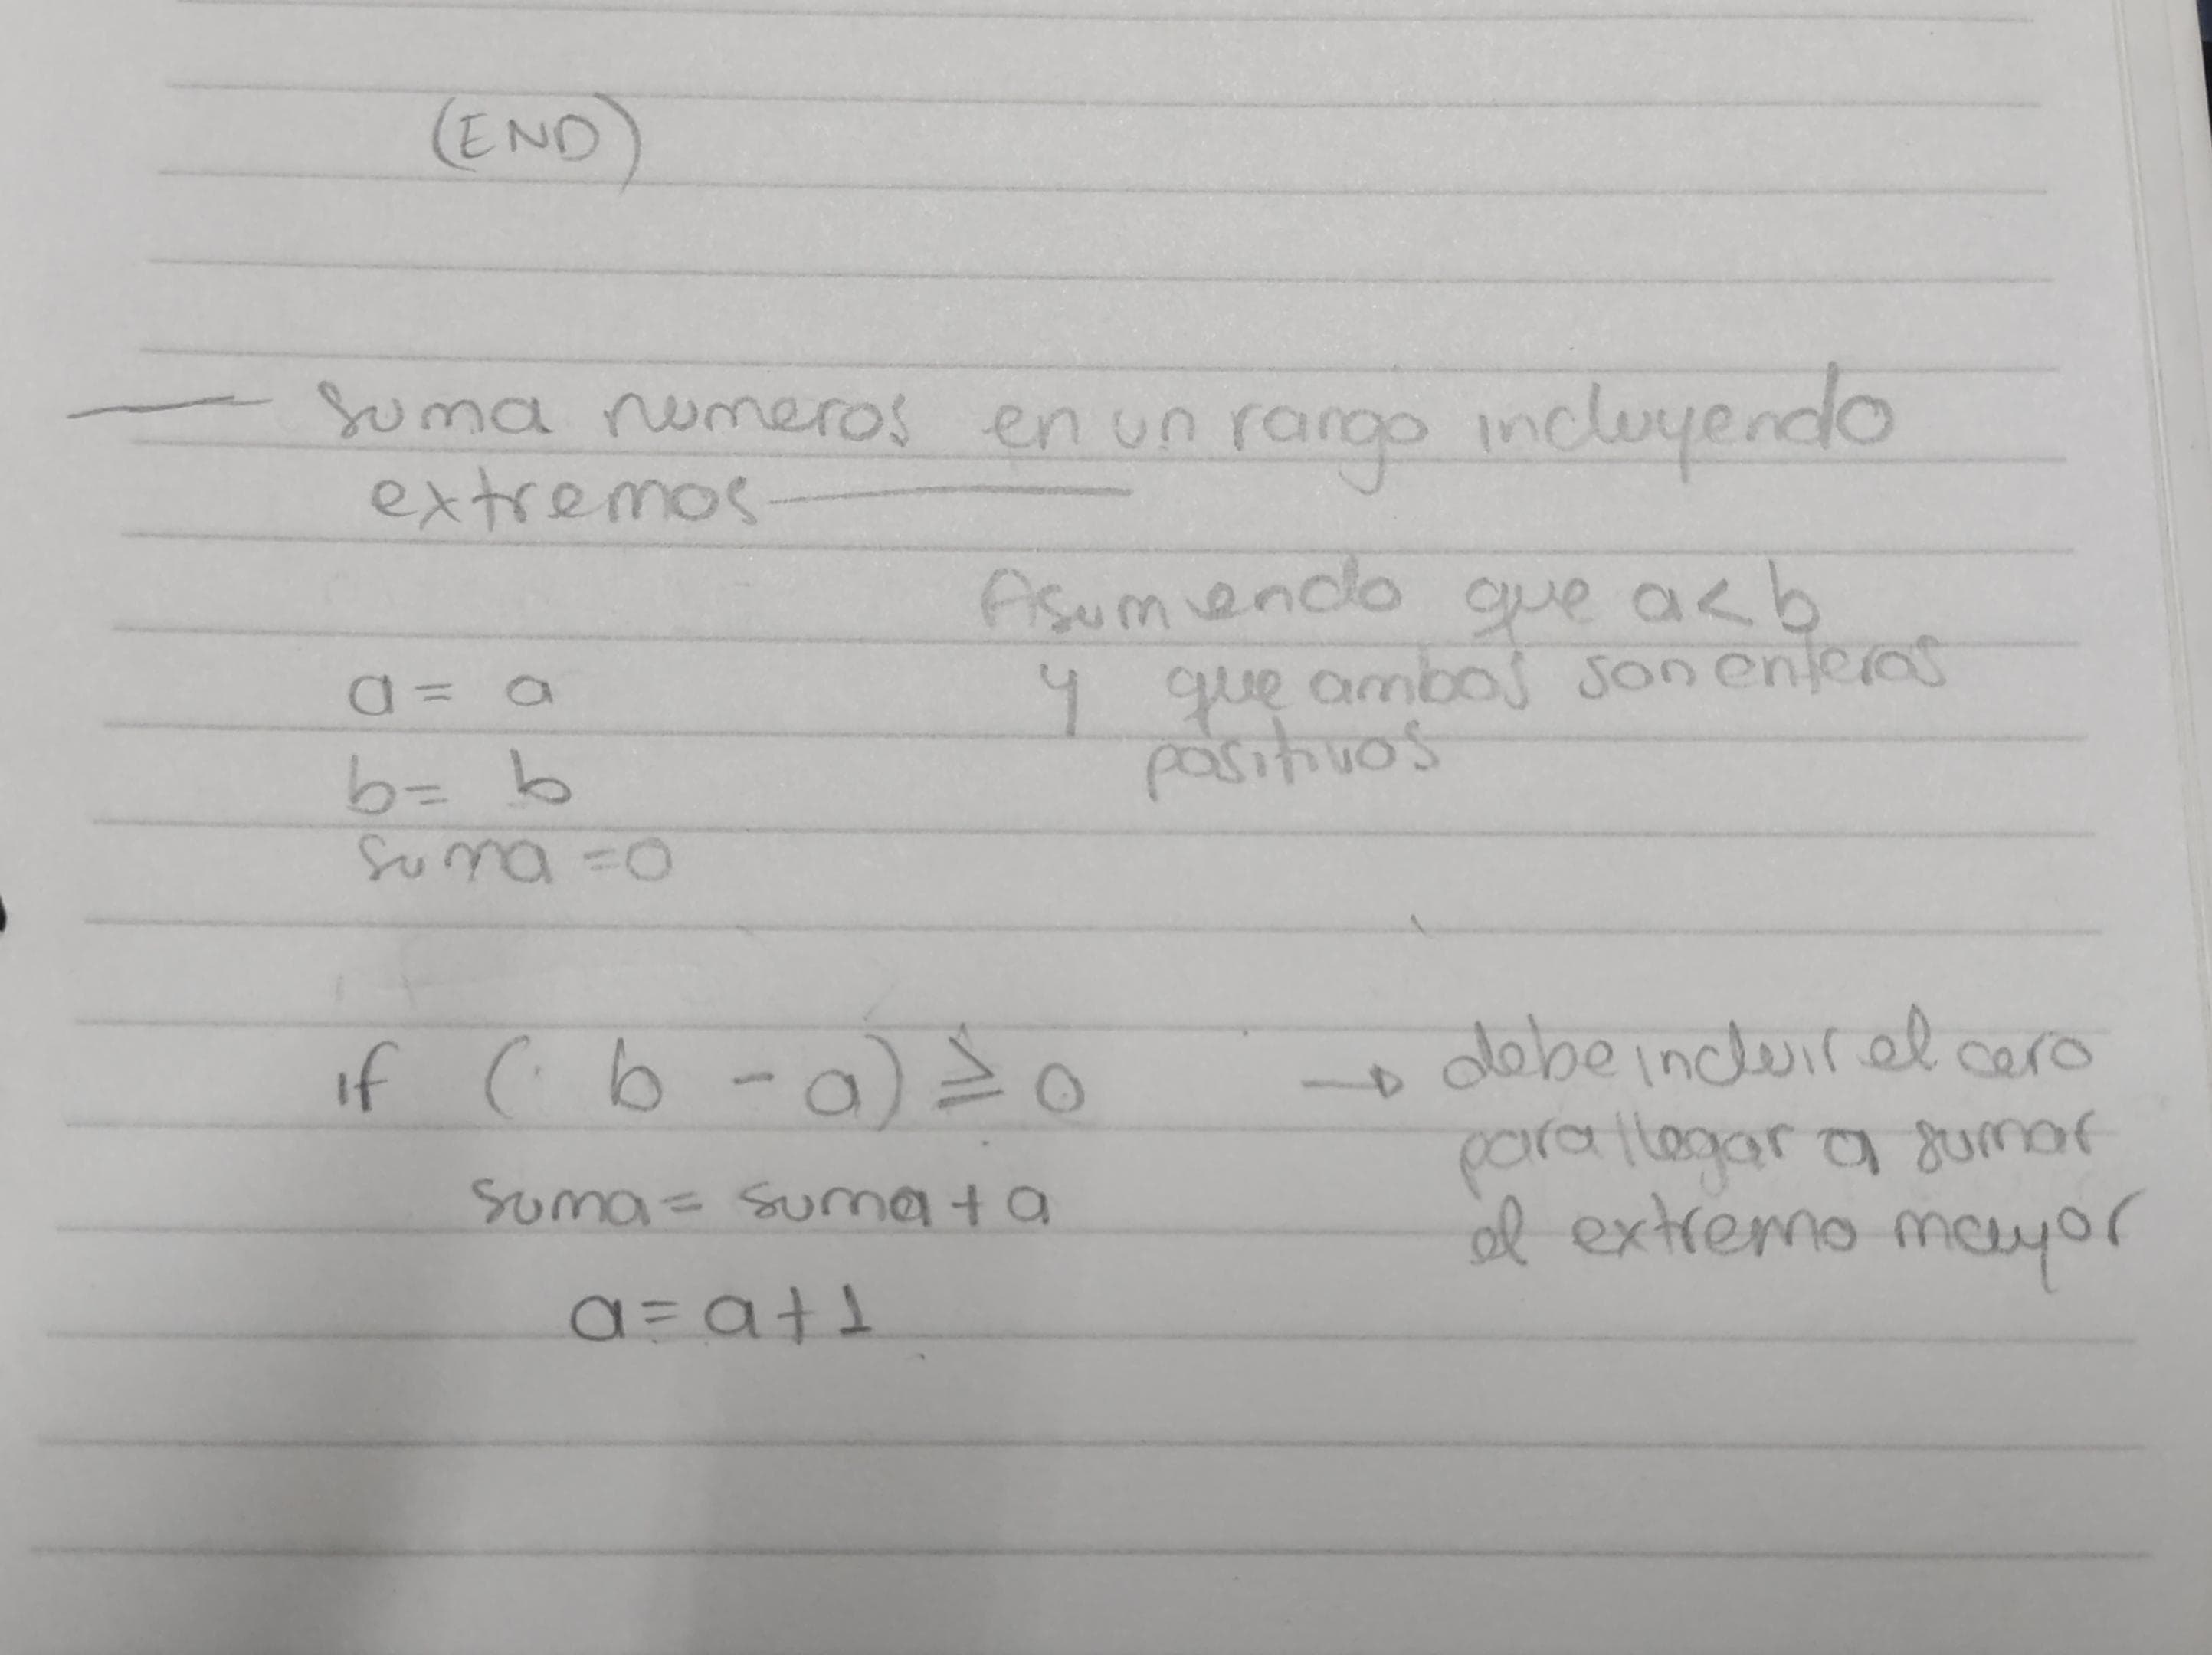 (END)
suma numeros en un rango incluyendo
extremos
Asumiendo que a<b
y que ambos son enteros
positivos
a= a
b= b
suma=0
if (b - a) ≥ 0 → debe incluir el cero
para llegar a sumar
el extremo mayor
suma= suma+a
a=a+1